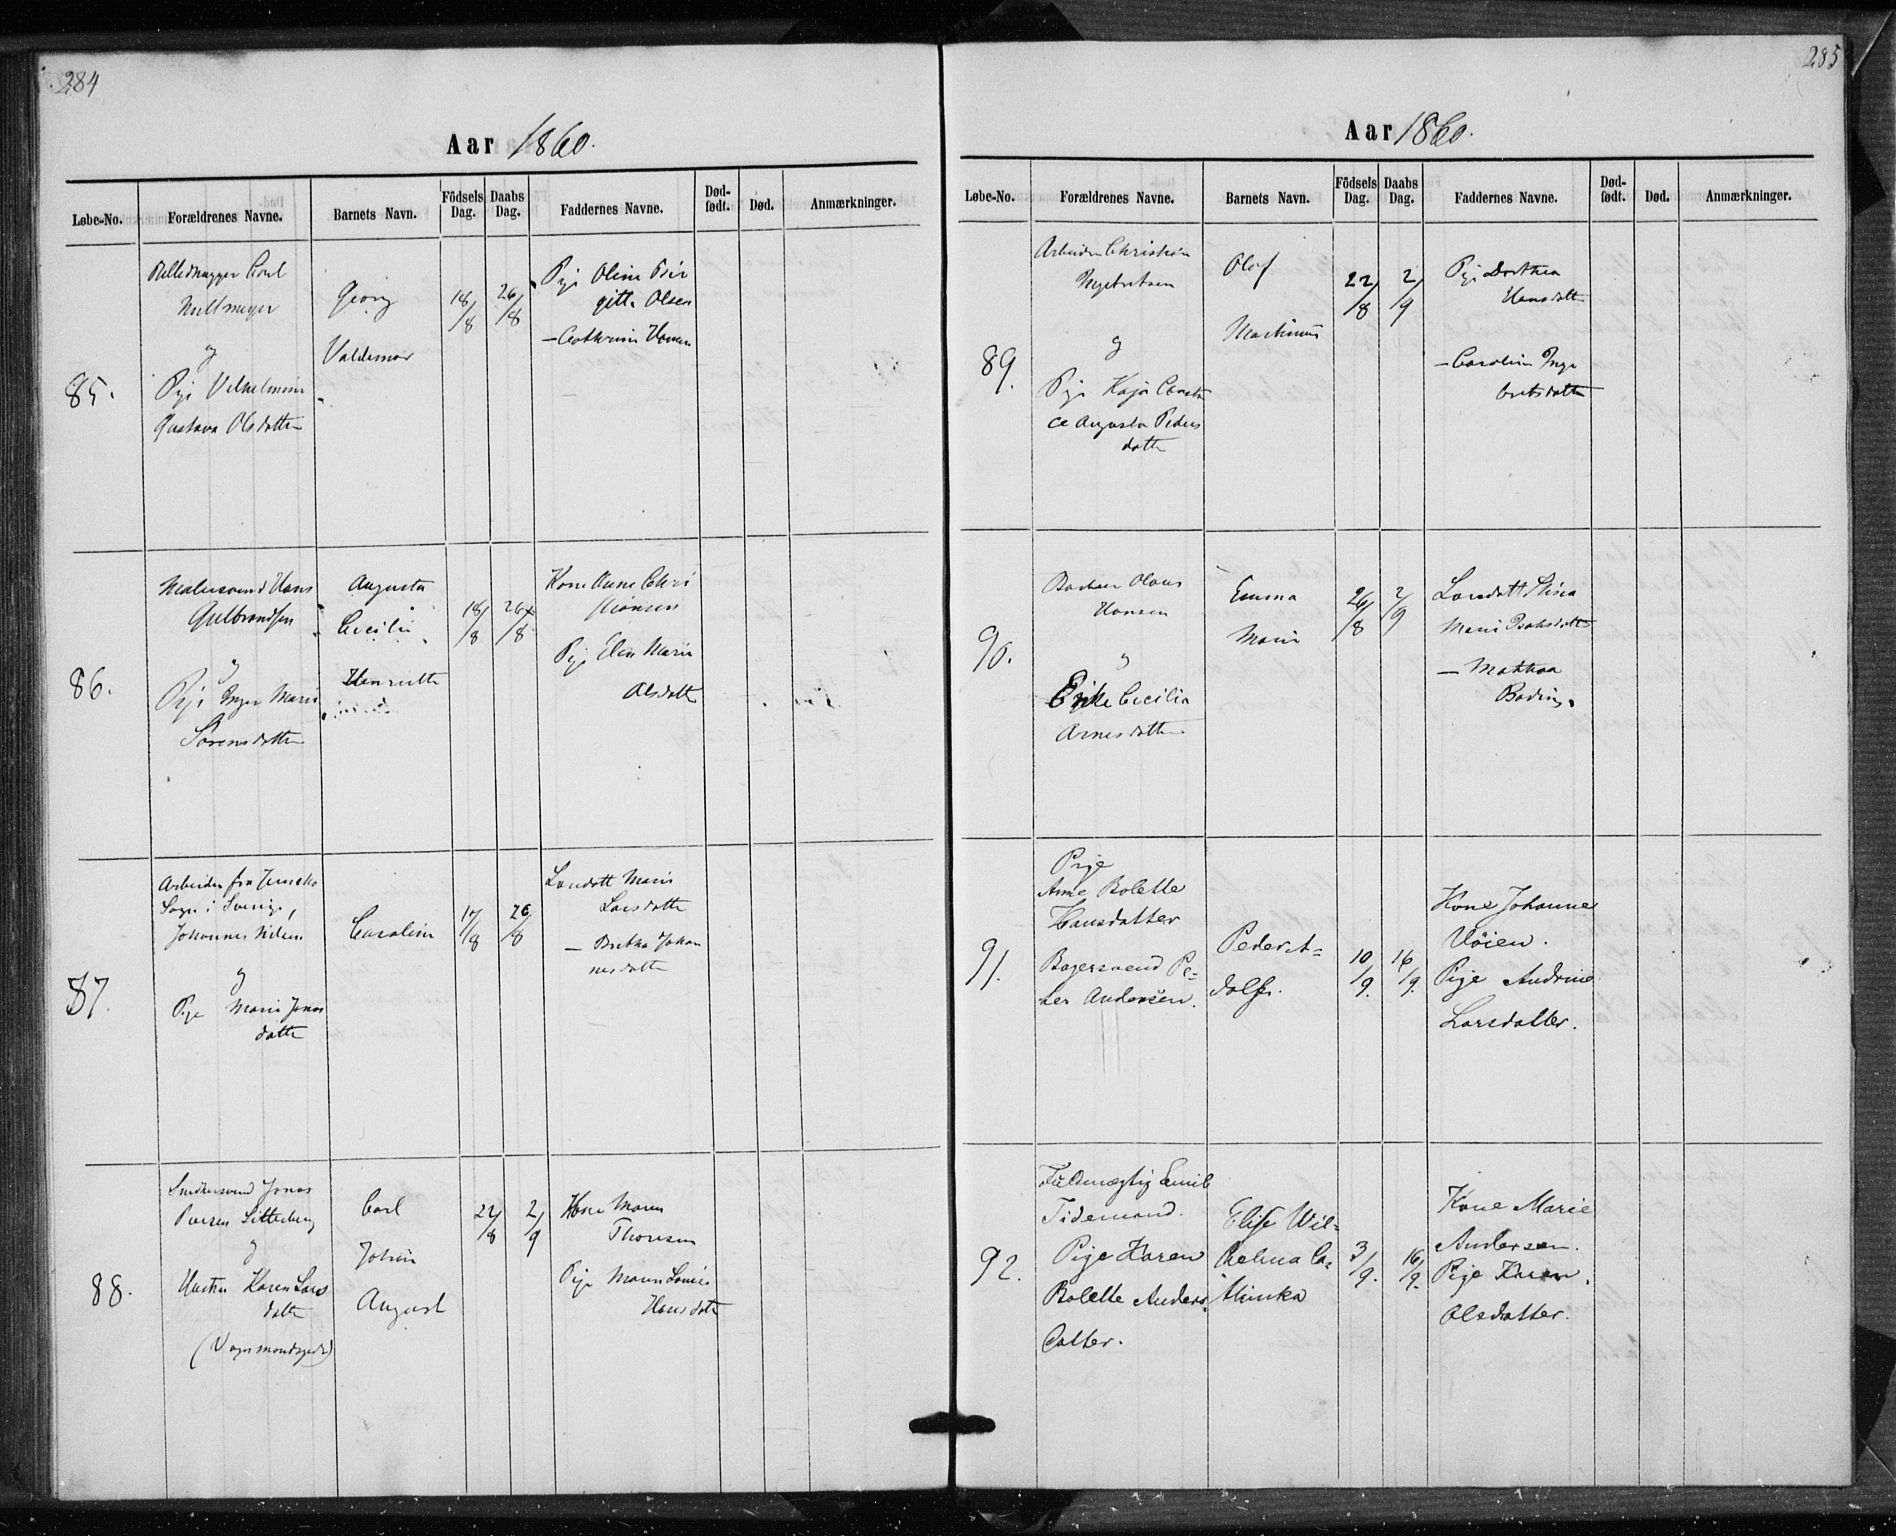 284
Aar 1860.
Løbe-No. Forældrenes Navne. Barnets Navn. Födsels Dag. Daabs Dag. Faddernes Navne. Død-født. Død. Anmærkninger.
85.
Carl
og
Pige Vilhelmine
Gustava Olsdatter
Georg
Valdemar
18/8
26/8
Pige Oline Bir
gitte Olsen
— Cathrine Hansen
86.
Malersvend Hans
Gulbrandsen
og
Pige Inger Marie
Sørensdatter
Augusta
Cecilie
Henriette
18/8
26/8
Kone Anne Chri
stiansen
Pige Elen Marie
Olsdatter
87.
Arbeider fra
Sogn i Sverige,
Johannes Nilsen
og
Pige Maria Jonas
datter
Caroline
17/8
26/8
Maria
Larsdatter
— Britha Johan
nesdatter
88.
Smedsvend Jonas
og
Karen Lars
datter
Carl
Johan
August
22/8
2/9
Kone Maren
Thoresen
Pige Maren Louise
Hansdatter
285
Aar 1860.
Løbe-No. Forældrenes Navne. Barnets Navn. Födsels Dag. Daabs Dag. Faddernes Navne. Død-født. Død. Anmærkninger.
89.
Arbeider Christian
Ingebretsen
og
Pige Kaja Constan
ce Augusta Peders
datter
Olaf
Martinius
22/8
2/9
Pige Dorthea
Hansdatter
— Caroline Inge
bretsdatter
90.
Olaus
Hansen
og
Enke Cecilia
Arnesdatter
Emma
Marie
26/8
2/9
Stina
Maria
— Mathea
91.
Pige
Anne Bolette
Hansdatter
Bagersvend Pe-
ter Andersen.
Peder A-
dolf.
10/9.
16/9.
Kone Johanne
Vöien.
Pige Andrine
Larsdatter.
92.
Fuldmægtig Emil
Tidemand.
Pige Karen
Bolette Anders-
datter.
Elise Wil-
helma Ca-
thinka
3/9.
16/9.
Kone Marie
Andersen.
Pige Karen
Olsdatter.